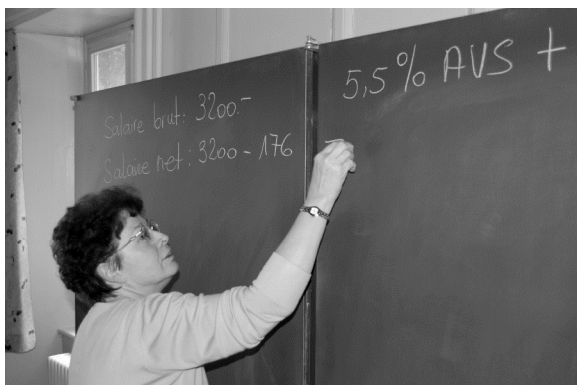 Salaire brut: 3200.-
Salaire net: 3200 - 176
5,5% AVS +